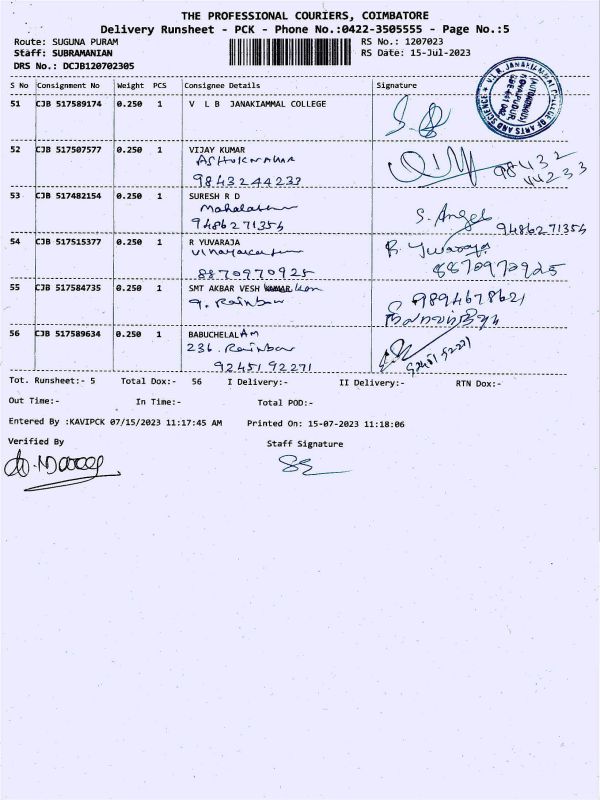 THE PROFESSIONAL COURIERS, COIMBATORE
Delivery Runsheet - PCK - Phone No.:0422-3505555 - Page No.:5
Route: SUGUNA PURAM RS No.: 1207023
Staff: SUBRAMANIAN RS Date: 15-Jul-2023
DRS No.: DCJB120702305
S No Consignment No Weight PCS Consignee Details Signature
51 CJB 517589174 0.250 1 V L B JANAKIAMMAL COLLEGE
52 CJB 517507577 0.250 1 VIJAY KUMAR
9843244233
98432
44233
53 CJB 517482154 0.250 1 SURESH R D
9486271354 S. Angel 9486271354
54 CJB 517515377 0.250 1 R YUVARAJA R. Yuvaraja
8870970925 8870970925
55 CJB 517584735 0.250 1 SMT AKBAR VESH 9894678621
9. Rainbow
56 CJB 517589634 0.250 1 BABUCHELAL AM
236. Rainbow
92451 92271 92451 92271
Tot. Runsheet:- 5 Total Dox:- 56 I Delivery:- II Delivery:- RTN Dox:-
Out Time:- In Time:- Total POD:-
Entered By :KAVIPCK 07/15/2023 11:17:45 AM Printed On: 15-07-2023 11:18:06
Verified By Staff Signature